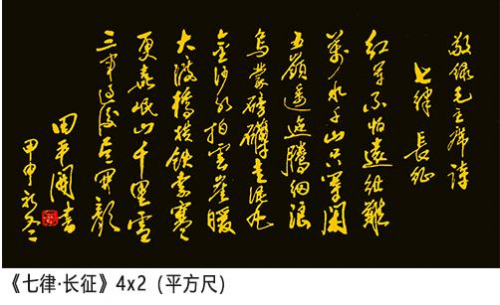 敬录毛主席詩
七律 長征
红军不怕遠征難
萬水千山只等閑
五嶺逶迤騰细浪
烏蒙磅礴走泥丸
金沙水拍雲崖暖
大渡橋横铁索寒
更喜岷山千里雪
三军过後尽开颜
田平開書
甲申
《七律·长征》4x2（平方尺）